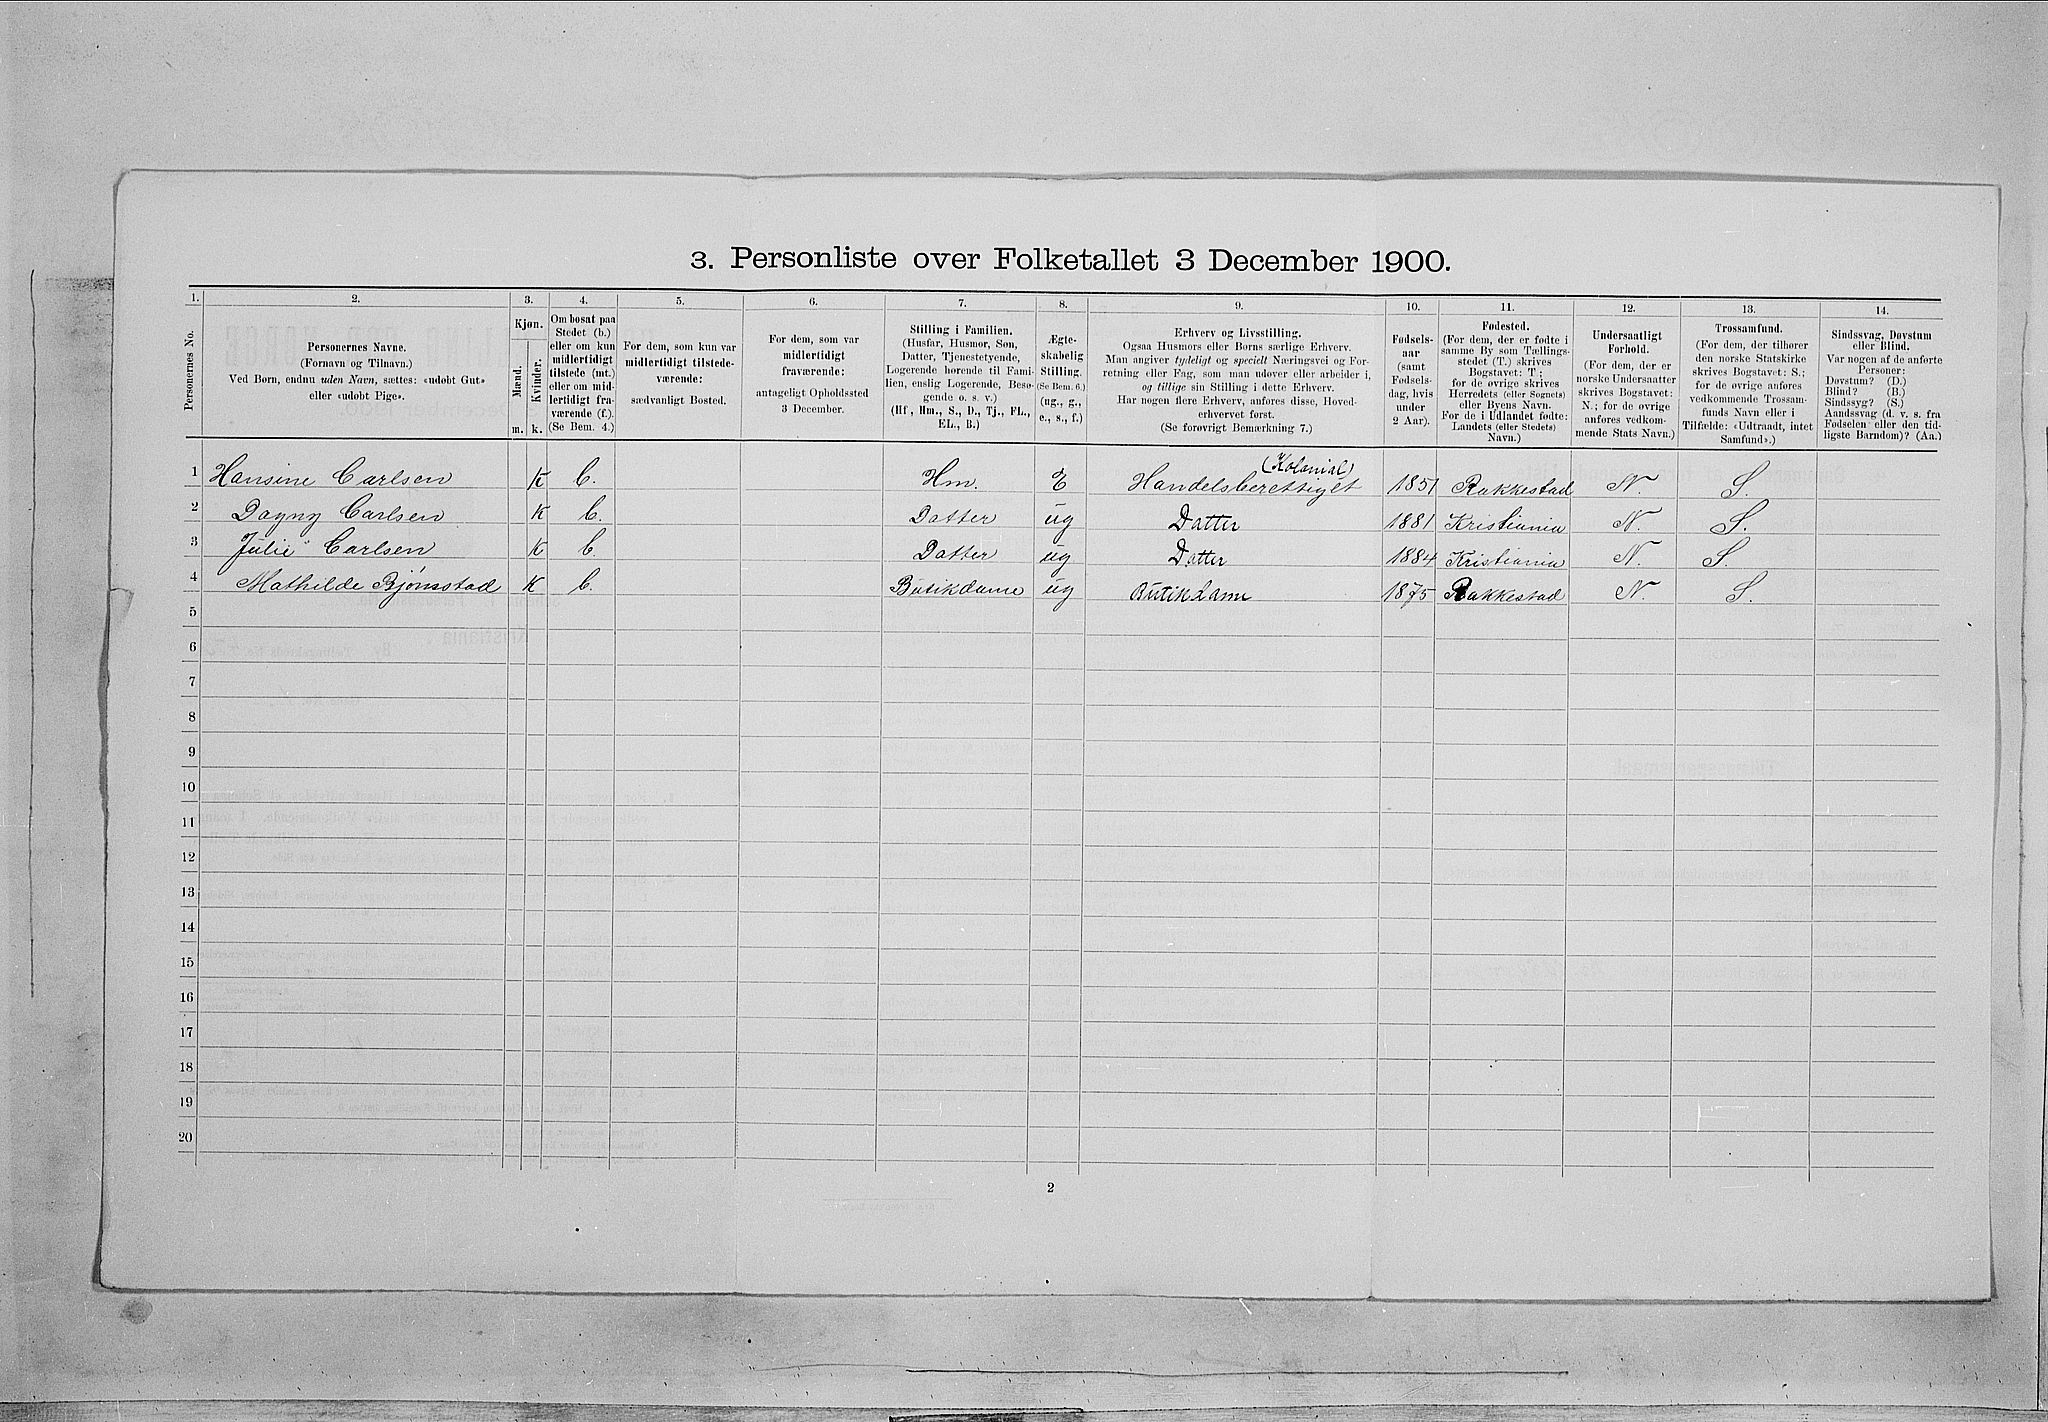 3. Personliste over Folketallet 3 December 1900.
1. 2. 3. 4. 5. 6. 7. 8. 9. 10. 11. 12. 13. 14.
Personernes No.
Personernes Navne.
(Fornavn og Tilnavn.)
Ved Børn, endnu uden Navn, sættes: «udøbt Gut»
eller «udøbt Pige».
Kjøn.
Mænd.
Kvinder.
m. k.
Om bosat paa
Stedet (b.)
eller om kun
midlertidigt
tilstede (mt.)
eller om mid-
lertidigt fra-
værende (f.).
(Se Bem. 4.)
For dem, som kun var
midlertidigt tilstede-
værende:
sædvanligt Bosted.
For dem, som var
midlertidigt
fraværende:
antageligt Opholdssted
3 December.
Stilling i Familien.
(Husfar, Husmor, Søn,
Datter, Tjenestetyende,
Logerende hørende til Fami-
lien, enslig Logerende, Besø-
gende o. s. v.)
(Hf., Hm., S., D., Tj., FL.,
EL., B.)
Ægte-
skabelig
Stilling.
(Se Bem. 6.)
(ug., g.,
e., s., f.)
Erhverv og Livsstilling.
Ogsaa Husmors eller Børns særlige Erhverv.
Man angiver tydeligt og specielt Næringsvei og For-
retning eller Fag, som man udøver eller arbeider i,
og tillige sin Stilling i dette Erhverv.
Har nogen flere Erhverv, anføres disse, Hoved-
erhvervet først.
(Se forøvrigt Bemærkning 7.)
Fødsels-
aar
(samt
Fødsels-
dag, hvis
under
2 Aar).
Fødested.
(For dem, der er fødte i
samme By som Tællings-
stedet (T.) skrives
Bogstavet: T;
for de øvrige skrives
Herredets (eller Sognets)
eller Byens Navn.
For de i Udlandet fødte:
Landets (eller Stedets)
Navn.)
Undersaatligt
Forhold.
(For dem, der er
norske Undersaatter
skrives Bogstavet:
N.; for de øvrige
anføres vedkom-
mende Stats Navn.)
Trossamfund.
(For dem, der tilhører
den norske Statskirke
skrives Bogstavet: S.;
for de øvrige anføres
vedkommende Trossam-
funds Navn eller i
Tilfælde: «Udtraadt, intet
Samfund».)
Sindssvag, Døvstum
eller Blind.
Var nogen af de anførte
Personer:
Døvstum? (D.)
Blind? (B.)
Sindssyg? (S.)
Aandssvag (d. v. s. fra
Fødselen eller den tid-
ligste Barndom)? (Aa.)
1 Hansine Carlsen K b. Hm. E Handelsberettiget (Kolonial) 1851 Rakkestad N. S.
2 Dagny Carlsen K b. Datter ug Datter 1881 Kristiania N. S.
3 Julie Carlsen K b. Datter ug Datter 1884 Kristiania N. S.
4 Mathilde Bjørnstad K b. Butikdame ug Butikdame 1875 Rakkestad N. S.
5
6
7
8
9
10
11
12
13
14
15
16
17
18
19
20
2